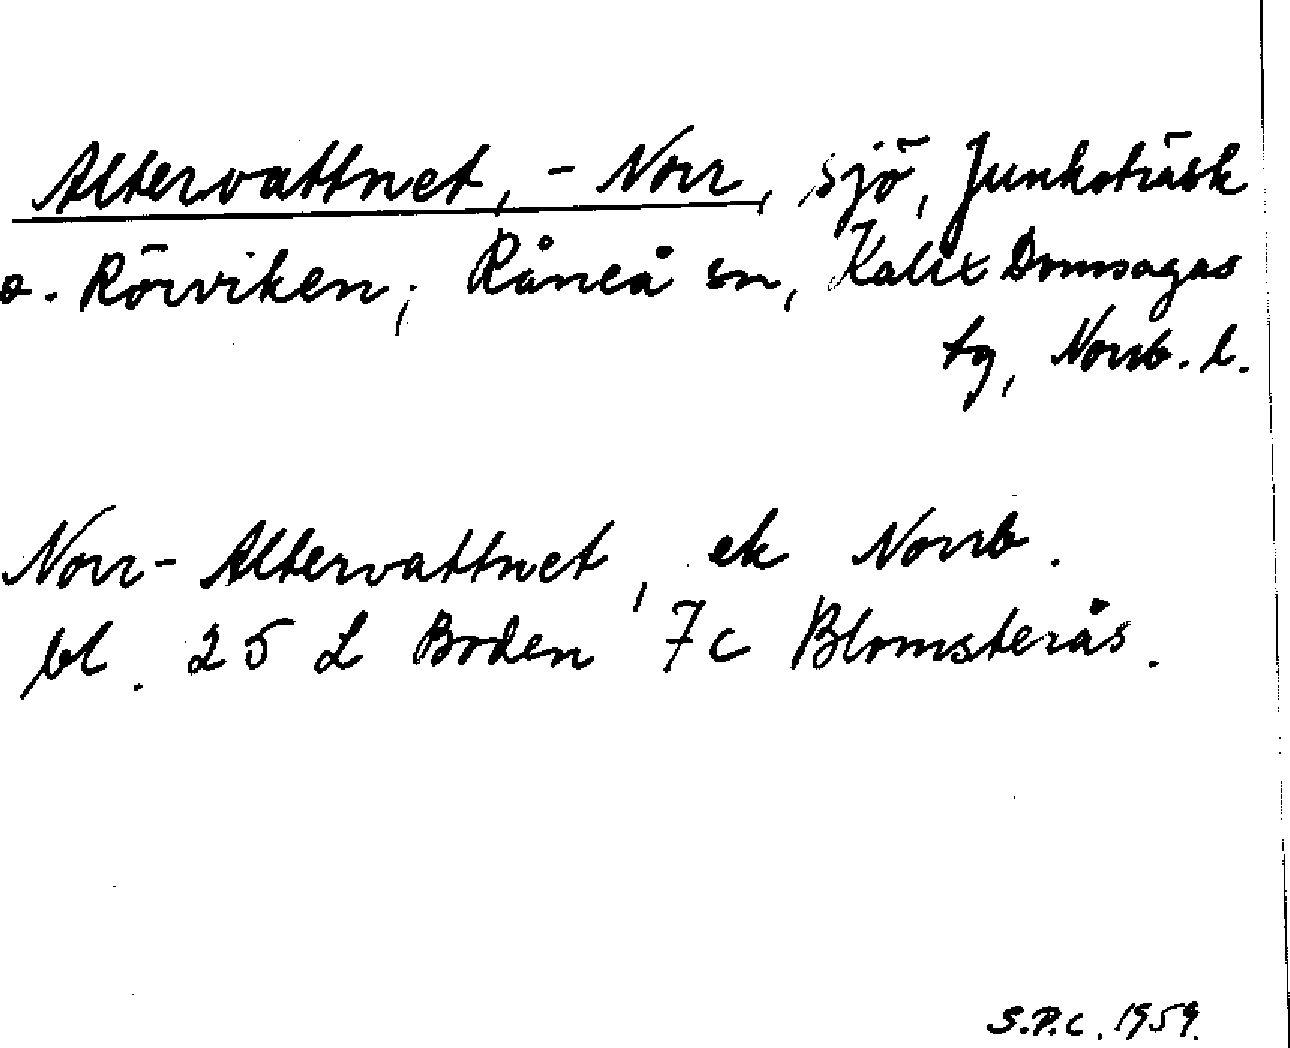 Altervattnet, - Norr, sjö, Junkoträsk
o. Rörviken; Råneå sn, Kalix Domsagas
tg, Norrb. l.
Norr-Altervattnet, ek Norrb.
bl. 25 L Boden 7c Blomsterås.
S.P.C. 1959.